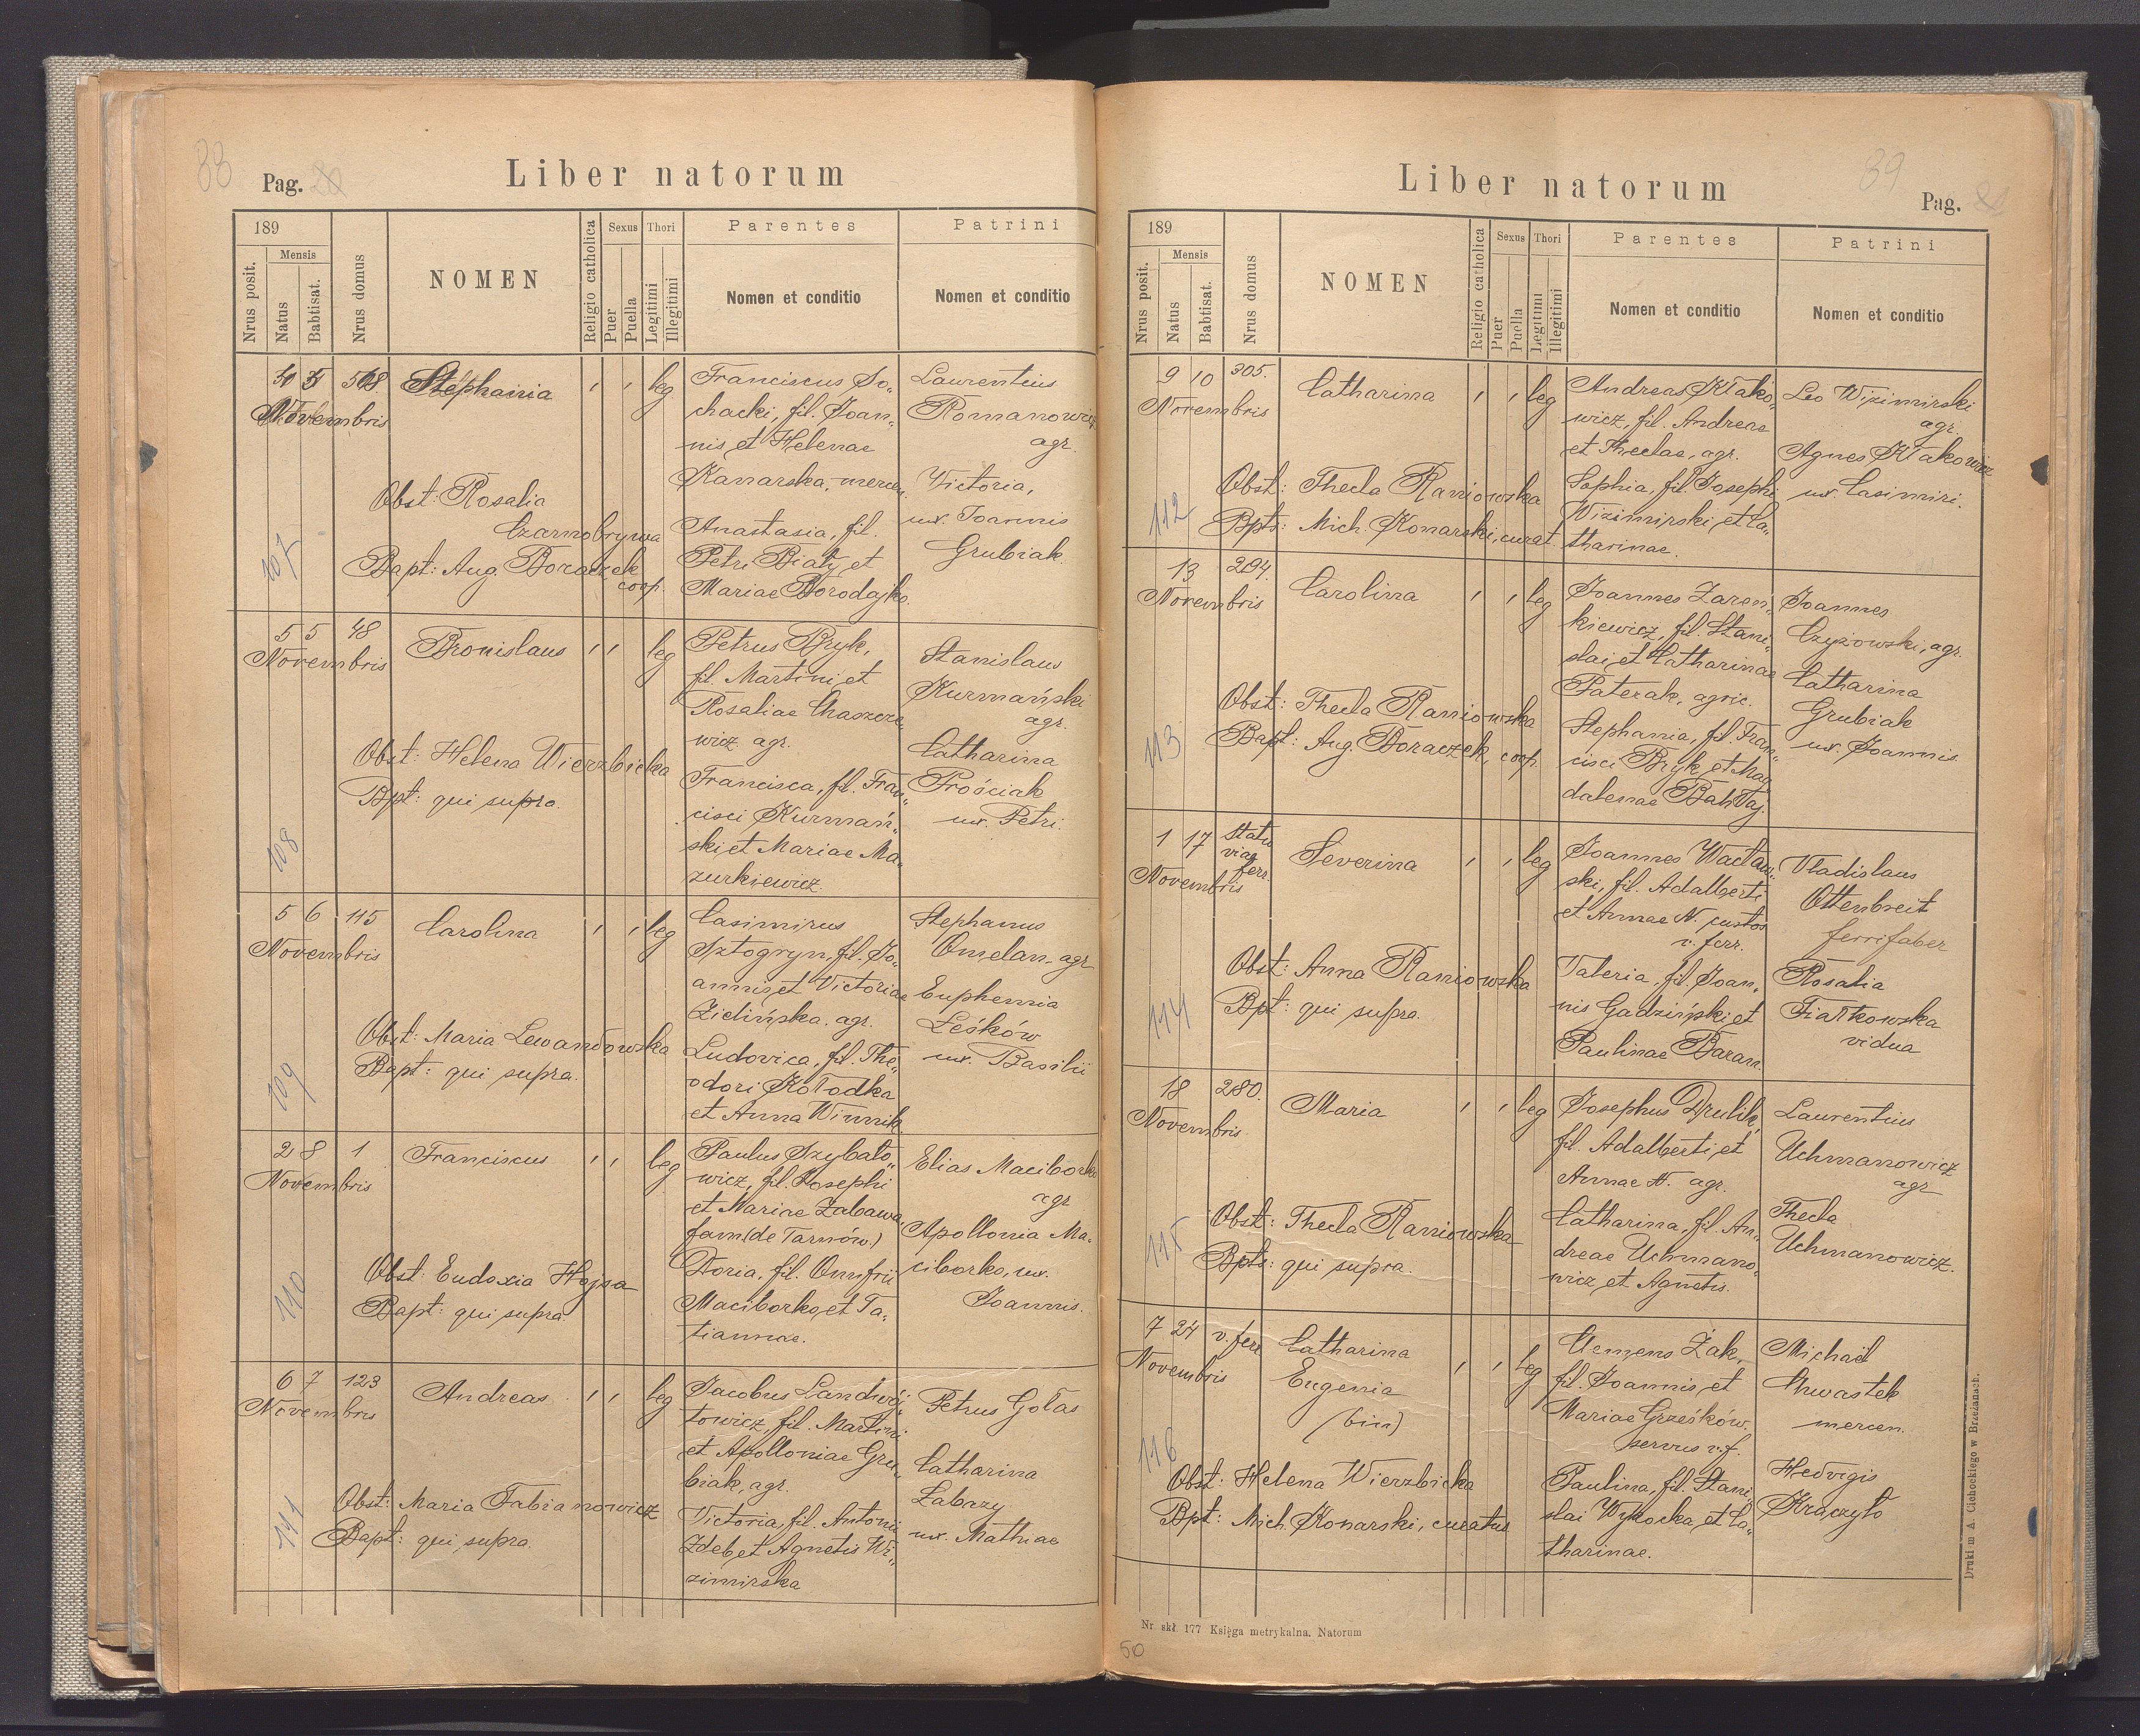 88
Pag.
Liber natorum
189
Mensis
Nrus posit.
Natus
Babtisat.
Nrus domus
NOMEN
Religio catholica
Sexus
Puer
Puella
Thori
Legitimi
Illegitimi
Parentes
Nomen et conditio
Patrini
Nomen et conditio
Stephania , , leg
Novembris
Obst: Rosalia
Czarnobrywa
Bapt: Aug. Boraczek
coop.
107
Franciscus So„
chacki, fil. Joan„
nis et Helenae
Kanarska, mercen.
Anastasia, fil.
Petri Biały et
Mariae Borodajko.
Laurentius
Romanowicz
agr.
Victoria,
ux. Joannis
Grubiak
5 5 48 Bronislaus , , leg
Novembris
Obst: Helena Wierzbicka
Bpt: qui supra.
108
Petrus Bryk,
fil. Martini et
Rosaliae Chaszcze„
wicz agr.
Francisca, fil. Fran„
cisci Kurmań„
ski et Mariae Ma„
zurkiewicz.
Stanislaus
Kurmański
agr.
Catharina
Prościak
ux. Petri.
5 6 115 Carolina , , leg
Novembris
Obst: Maria Lewandowska
Bapt: qui supra.
109
Casimirus
Sztogryn, fil. Jo„
annis et Victoriae
Zielińska. agr.
Ludovica, fil. The„
odori Kołodka
et Anna Winnik.
Stephanus
Omelan agr
Euphemia
Leśków
ux. Basilii
2 8 1 Franciscus , , leg
Novembris
Obst: Eudoxia Hojsa
Bapt: qui supra
110
Paulus Szybało„
wicz, fil. Josephi
et Mariae Zabawa,
fam (de Tarnów.)
Doria, fil. Onufrii
Maciborko, et Ta„
tiannae.
Elias Maciborko
agr
Apollonia Ma„
ciborko, ux.
Joannis.
6 7 123 Andreas , , leg
Novembris
Obst: Maria Fabianowicz
Bapt: qui supra.
111
Jacobus Landwój„
towicz, fil. Martini
et Apolloniae Gru„
biak, agr.
Victoria, fil. Antonii
Zdeb et Agnetis Wi„
zimirska
Petrus Gołas
Catharina
Łabazy
ux. Mathiae
Liber natorum
89
Pag.
189
Mensis
Nrus posit.
Natus
Babtisat.
Nrus domus
NOMEN
Religio catholica
Sexus
Puer
Puella
Thori
Legitimi
Illegitimi
Parentes
Nomen et conditio
Patrini
Nomen et conditio
9 10 305. Catharina , , leg
Novembris
Obst: Thecla Raniowska
Bpts: Mich. Konarski, curat.
112
Andreas Kłako„
wicz, fil. Andreae
et Theclae, agr.
Sophia, fil. Josephi
Wizimirski et Ca„
tharinae.
Leo Wizimirski
agr.
Agnes Kłakowicz
ux. Casimiri.
13 294. Carolina , , leg
Novembris
Obst: Thecla Raniowska
Bapt: Aug. Boraczek, coop.
113
Joannes Zaren„
kiewicz, fil. Stani„
slai et Catharinae
Paterak, agric.
Stephania, fil. Fran„
cisci Bryk et Mag
dalenae Bahłaj.
Joannes
Czyżowski, agr.
Catharina
Grubiak
ux. Joannis.
1 17 Statio
viae
ferr. Severina , , leg
Novembris
Obst: Anna Raniowska
Bpt: qui supra.
114
Joannes Wacław„
ski, fil. Adalberti
et Annae N. custos
v. ferr.
Valeria, fil. Joan„
nis Gadziński et
Paulinae Baran.
Vladislaus
Ottenbreit
ferrifaber
Rosalia
Fiałkowska
vidua
18 280. Maria , , leg
Novembris
Obst: Thecla Raniowska
Bpts: qui supra.
115
Josephus Drulik,
fil. Adalberti et
Annae N. agr.
Catharina, fil. An„
dreae Uchmano„
wicz et Agnetis.
Laurentius
Uchmanowicz
agr
Thecla
Uchmanowicz.
7 24 v. ferr Catharina , , leg
Novembris
Eugenia
(bin)
Obst: Helena Wierzbicka
Bpt: Mich. Konarski, curatus
116
Clemens Żak,
fil. Joannis et
Mariae Grześków.
servus v.f.
Paulina, fil. Stani„
slai Wysocka et Ca„
tharinae.
Michaël
Chwastek
mercen.
Hedvigis
Kraczyło
Druki m A. Cichockiego w Brzeżanach.
Nr skł 177 Księga metrykalna. Natorum
50